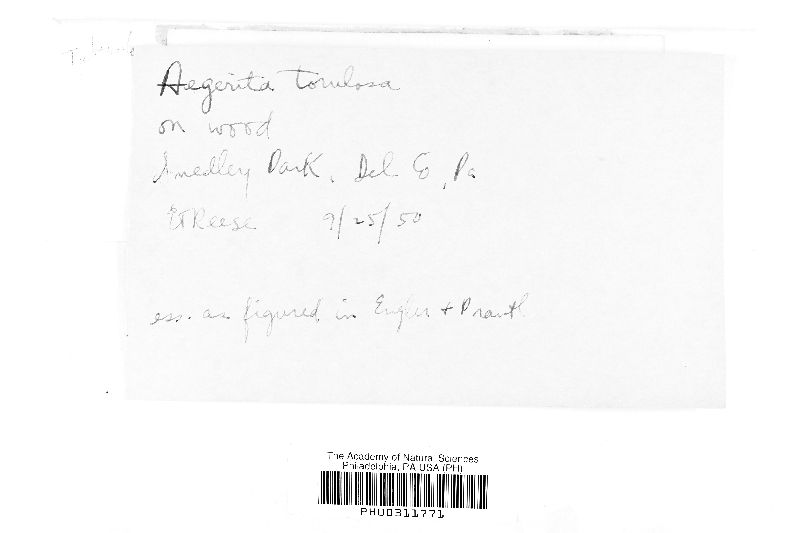 Aegerita torulosa
on wood
Smedley Park, Del Co, Pa
ETReese 9/25/50
ess. as figured in Engler + Prantl
The Academy of Natural Sciences
Philadelphia, PA USA (PH)
PHU0311771